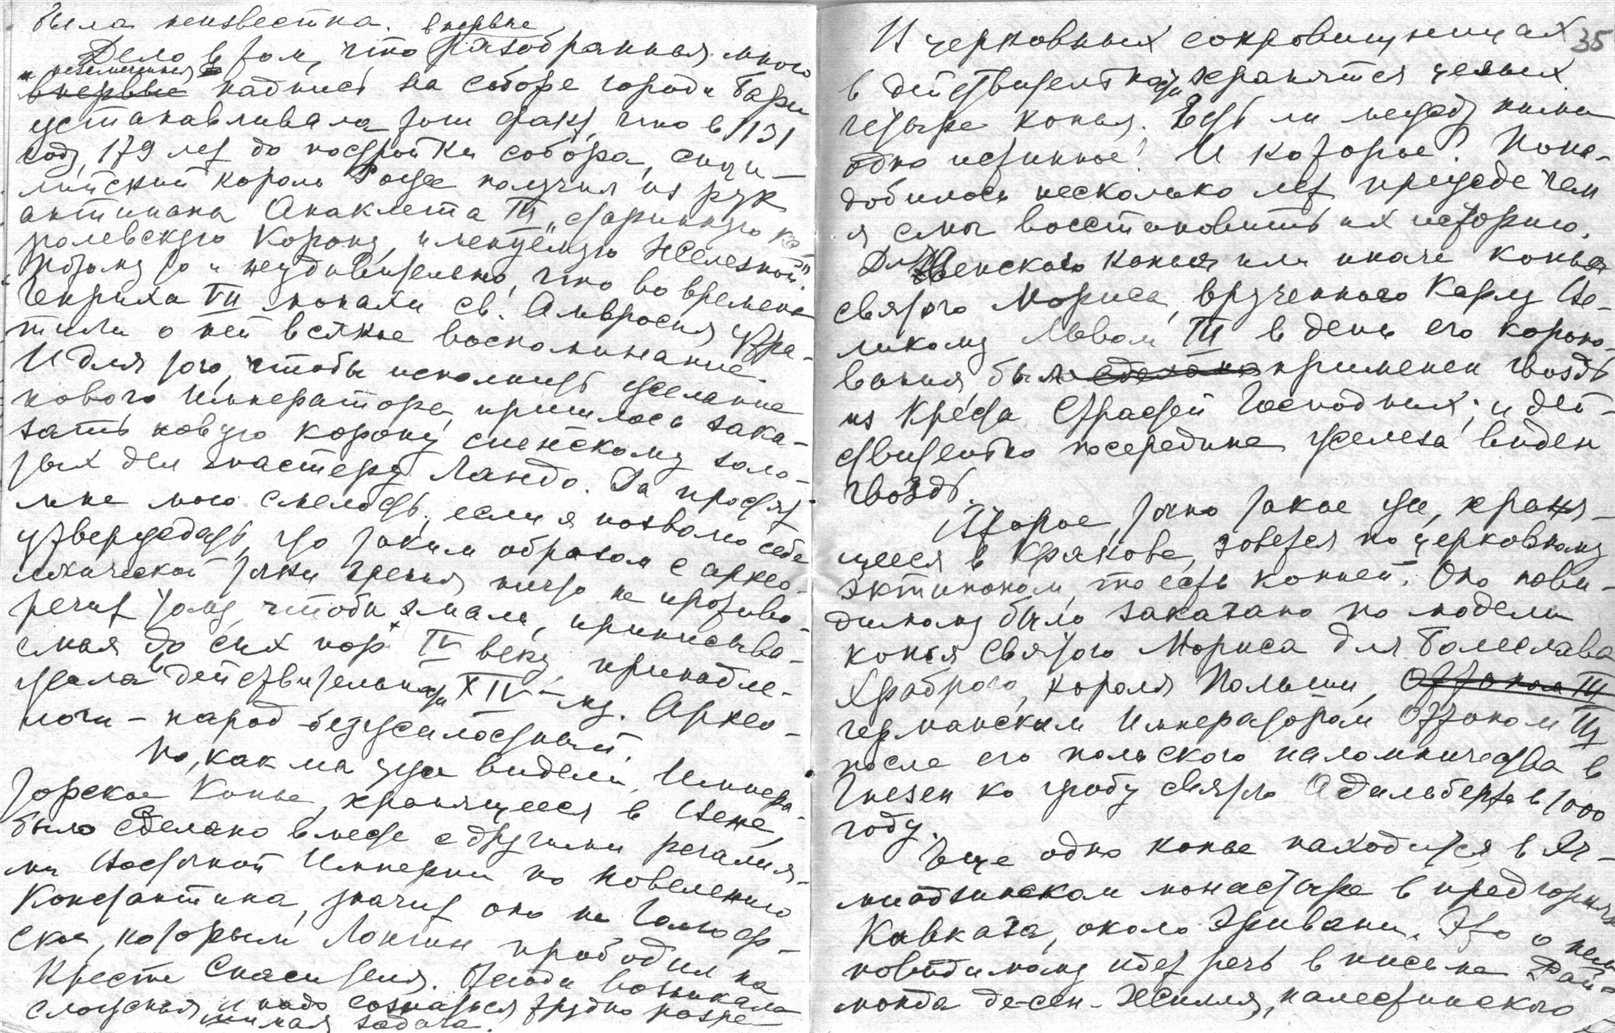 была неизвестна.
Дело в том, что впервые разобранная много
незамеченная впервые надпись на соборе города Бари
устанавливала тот факт, что в 1131
году, 179 лет до постройки собора, сици-
лийский король Роже получил из рук
антипапа Анаклета III "старинную ко-
ролевскую Корону, именуемую Железной".
Потому-то и неудивительно, что во времена
Генриха VII монахи св. Амвросия утра-
тили о ней всякое воспоминание.
И для того, чтобы исполнить желание
нового Императора, пришлось зака-
зать новую корону сиенскому золо-
тых дел мастеру Ландо. Да простят
мне мою смелость, если я позволю себе
утверждать, что таким образом с архео-
логической точки зрения ничто не противо-
речит тому, чтобы эмали, приписыва-
емая до сих пор IV веку, принадле-
жала в действительности XIV-му. Архео-
логи - народ безжалостный.
Но, как мы уже видели, Импера-
торское Копье, хранящееся в Вене,
было сделано вместе с другими регалия-
ми Восточной Империи по повелению
Константина, значит оно не Голгоф-
ское, которым Лонгин прободил на
Кресте Спасителя. Отсюда возникала
сложная и надо сознаться трудно разре-
шимая задача.
И церковных сокровищницах 35
в действительности хранятся целых
четыре копья. Есть ли между ними
одно истинное? И которое? Пона-
добилось несколько лет прежде чем
я смог восстановить их историю.
Для Венского копья или иначе копья
святого Мориса, врученного Карлу Ве-
ликому Львом III в день его короно-
вания, был сделано применен гвоздь
из Креста Страстей Господних; и дей-
ствительно посередине железа виден
гвоздь.
Второе, точно такое же, храня-
щееся в Кракове, зовется по церковному
эктипоном, то есть копией. Оно пови-
димому было заказано по модели
копья святого Мориса для Болеслава
Храброго, короля Польши, Оттоном III
германским Императором Оттоном III
после его польского паломничества в
Гнезен ко гробу святого Адальберта в 1000
году.
Еще одно копье находится в Эч-
миадзинском монастыре в предгориях
Кавказа, около Эривани. Это о нем
повидимому идет речь в письме Рай-
монда де-сен-Жилля, палестинского